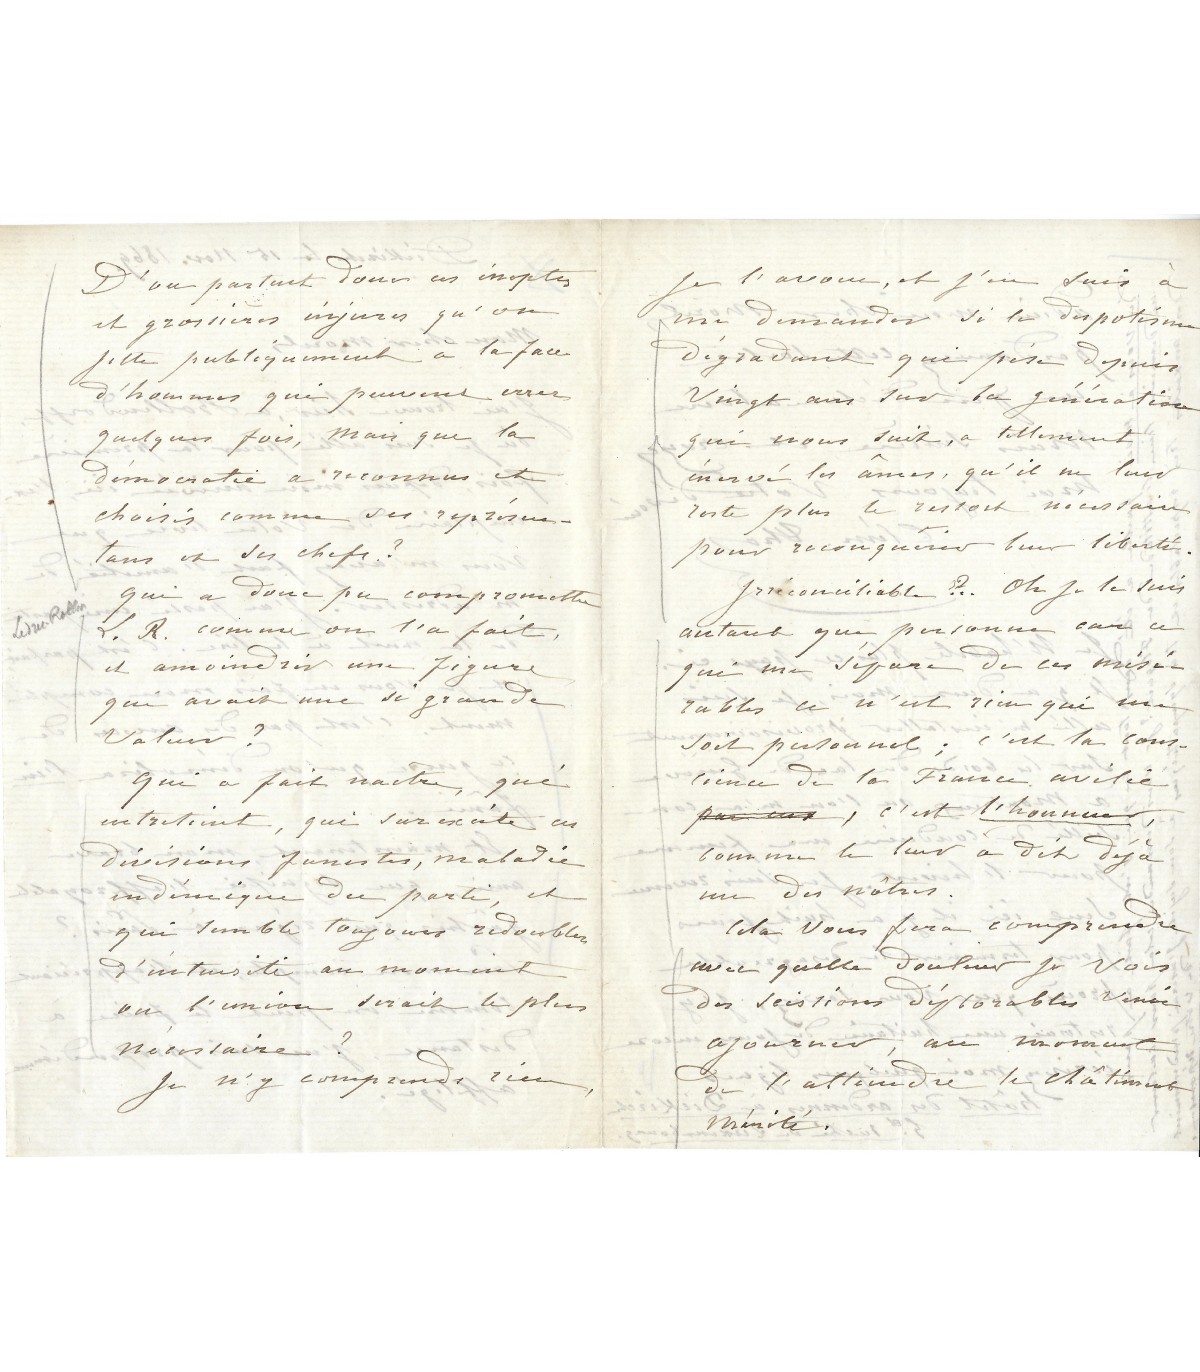 D'ou partent donc ces ineptes
et grossières injures qu'on
jette publiquement à la face
d'hommes qui peuvent errer
quelques fois, mais que la
démocratie a reconnus et
choisis comme ses représen-
tans et ses chefs ?
qui a donc pu compromettre
Ledru Rollin
L. R. comme on l'a fait,
et amoindrir une figure
qui avait une si grande
valeur ?
qui a fait naitre, qui
entretient, qui surexcite ces
divisions funestes, maladie
endémique du parti, et
qui semble toujours redoubler
d'intensité au moment
ou l'union serait le plus
nécessaire ?
Je n'y comprends rien,
je l'avoue, et j'en suis à
me demander si le despotisme
dégradant qui pèse depuis
vingt ans sur la génération
qui nous suit, a tellement
énervé les âmes, qu'il ne leur
reste plus le ressort nécessaire
pour reconquérir leur liberté.
Irréconciliable ?.. Oh je le suis
autant que personne car ce
qui me sépare de ces misé-
rables ce n'est rien qui me
soit personnel ; c'est la cons-
cience de la France avilie
par eux, c'est l'honneur,
comme le leur à dit déjà
un des nôtres.
Cela vous fera comprendre
avec quelle douleur je vois
des scissions déplorables venir
ajourner, au moment
de l'atteindre le châtiment
mérité.